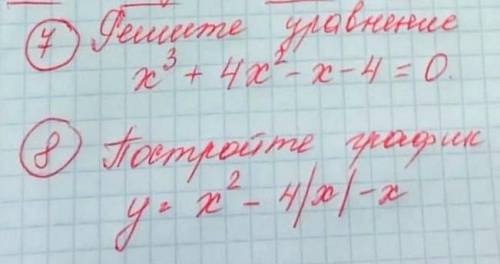 7 Решите уравнение
x³ + 4x² - x - 4 = 0.
8 Постройте график
y = x² - 4|x| - x